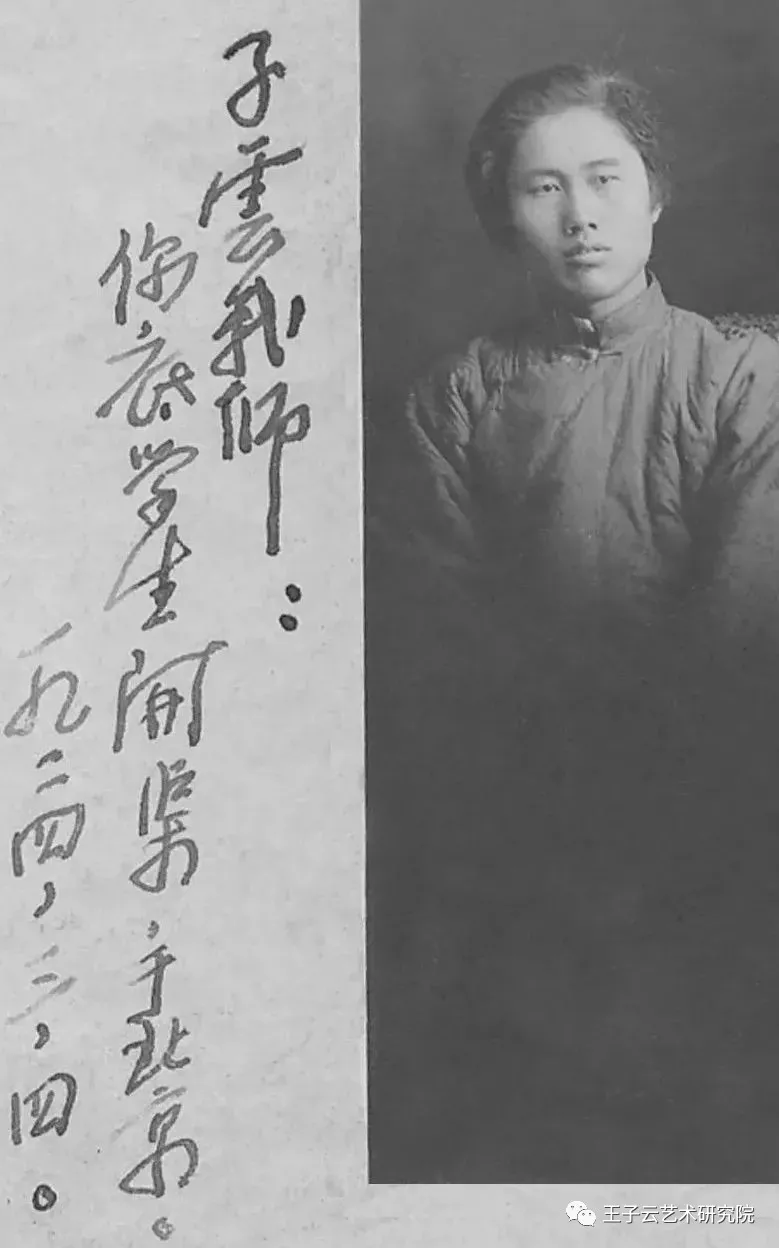 子雲我师：
你底学生開渠，于北京。
一九二四，三，四。
王子云艺术研究院